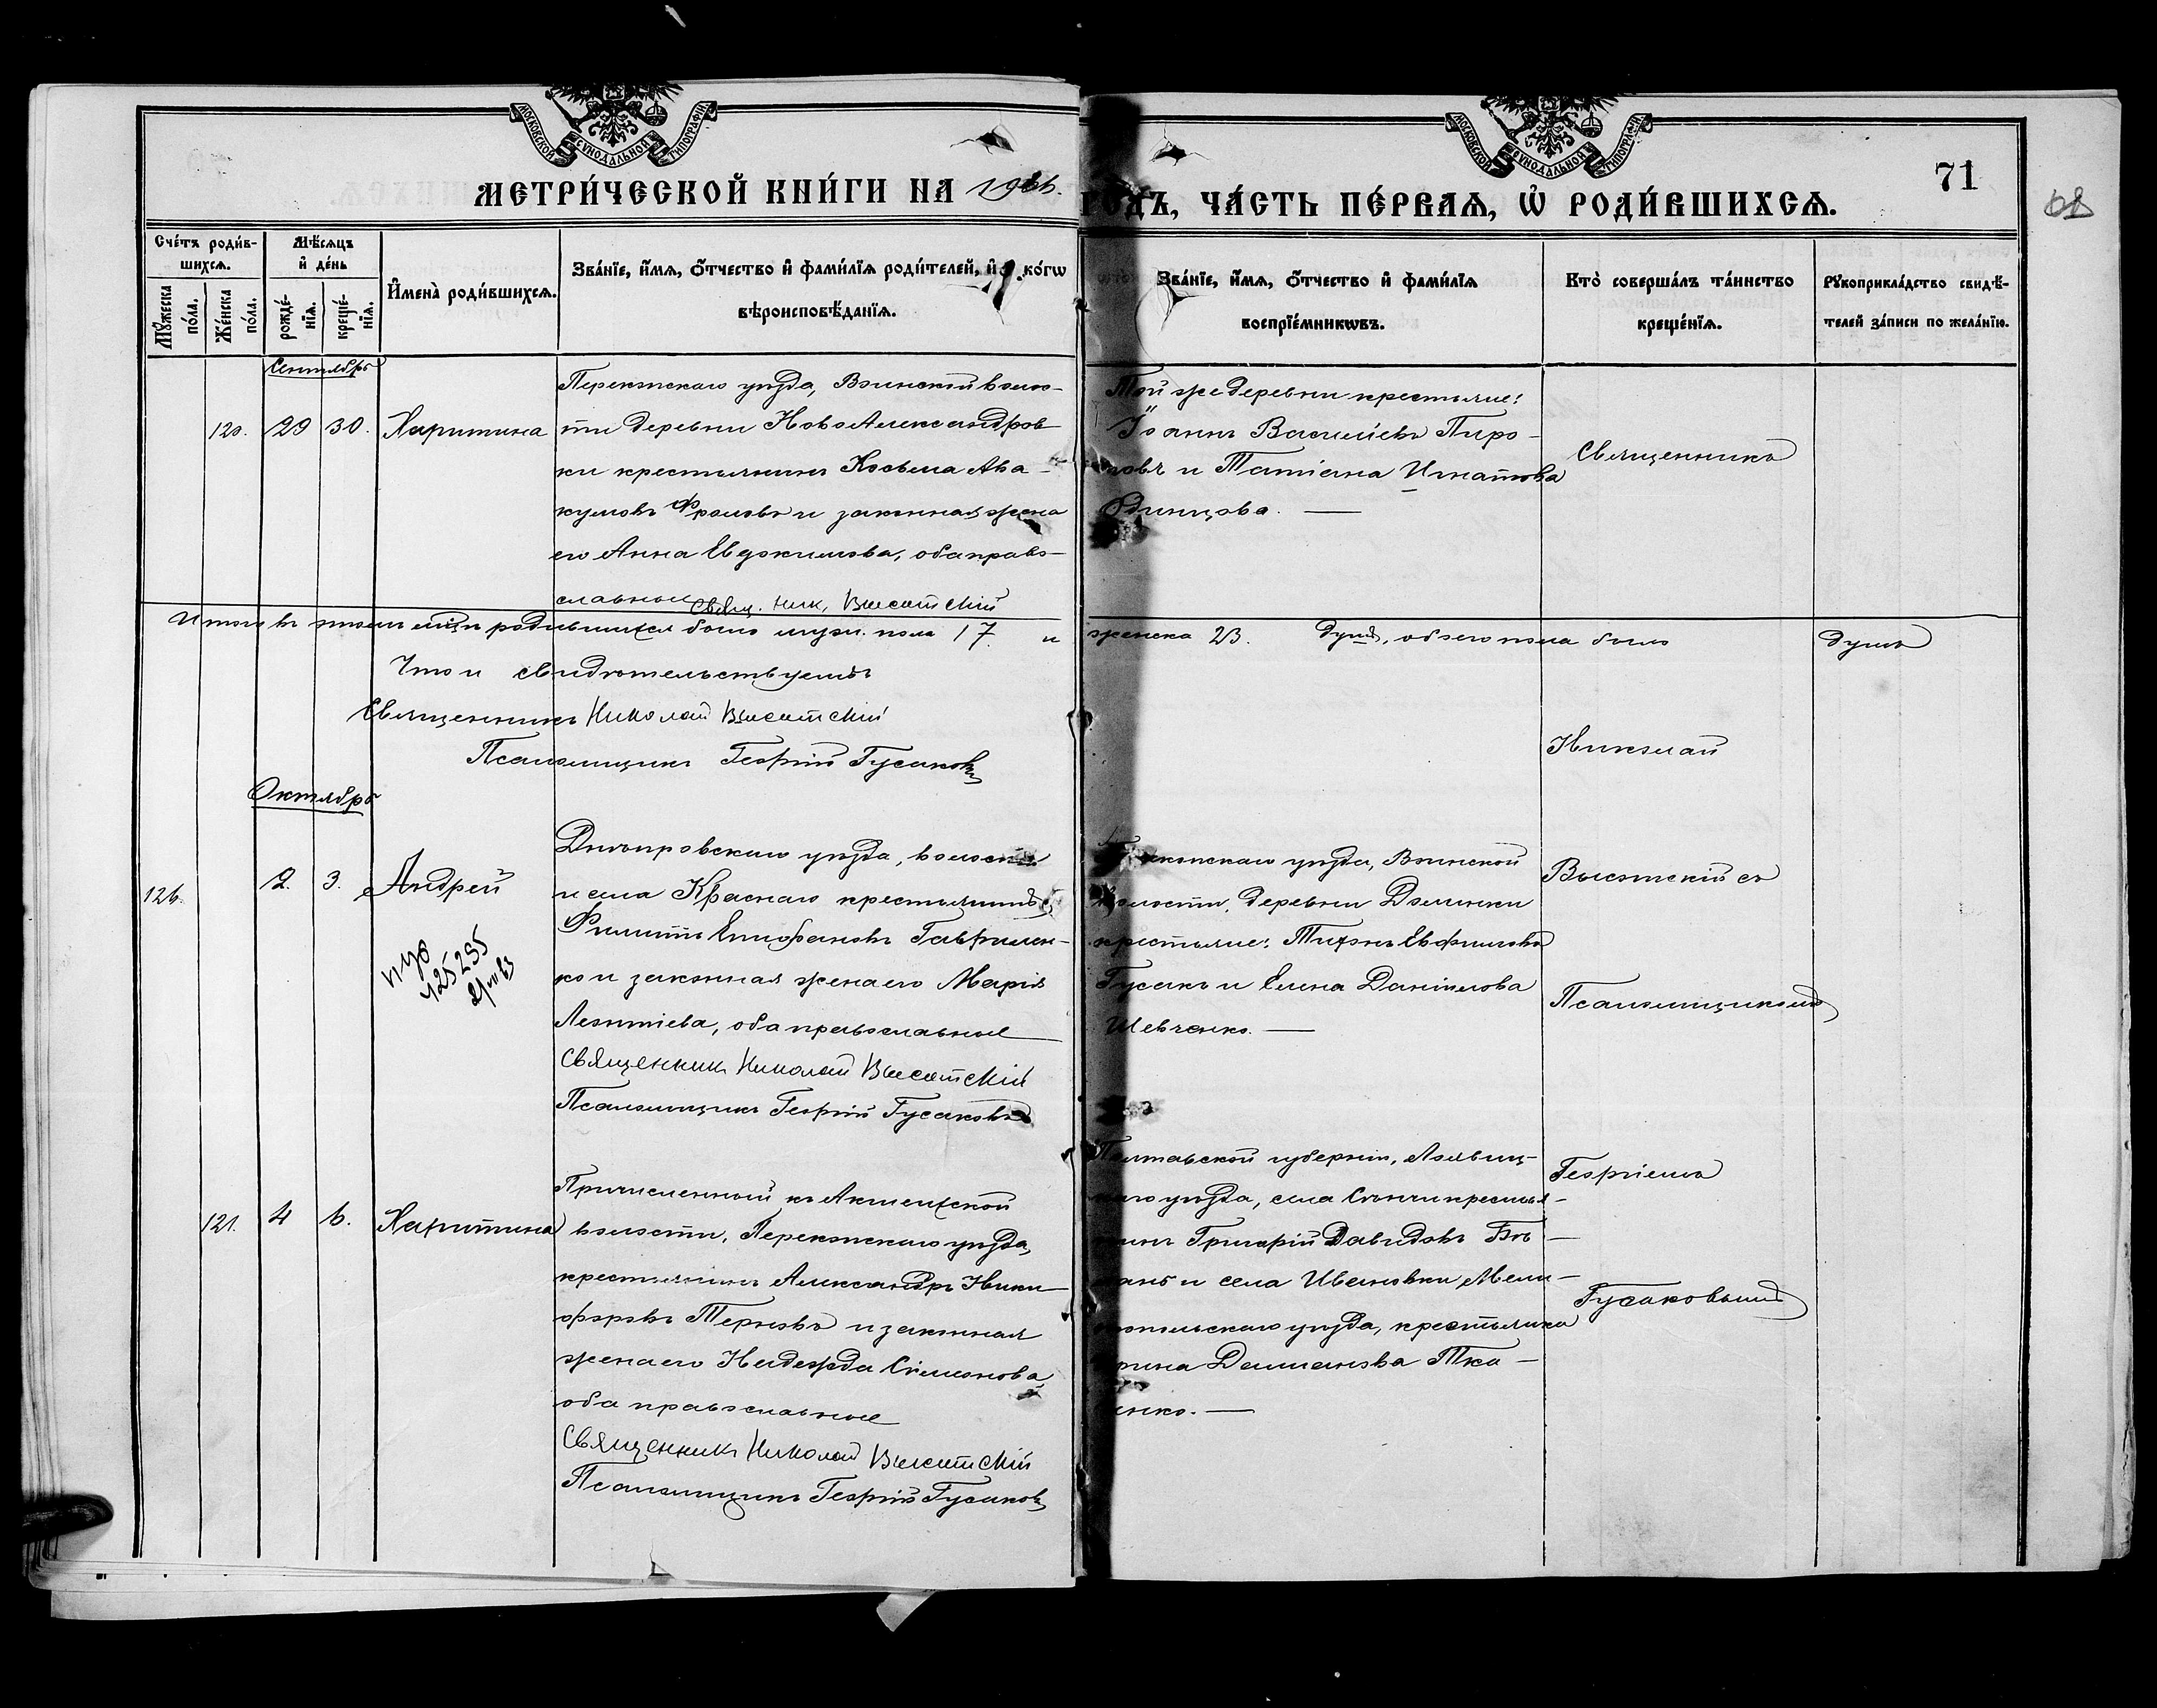 МОСКОВСКОЙ СѴНОДАЛЬНОЙ ТИПОГРАФІИ
МЕТРИ́ЧЕСКОЙ КНИ́ГИ НА
МОСКОВСКОЙ СѴНОДАЛЬНОЙ ТИПОГРАФІИ
71
ГОДЪ, ЧА́СТЬ ПЕ́РВАЯ, Ѡ РОДИ́ВШИХСЯ.
Сче́тъ роди́в-
шихся.
Мꙋжеска по́ла.
Же́нска по́ла.
Мѣ́сяцъ и де́нь
рожде́-нїя.
креще́-нїя.
Имена̀ роди́вшихся.
Зва́нїе, и́мя, ѻ́тчество и фами́лїя роди́телей, и ко́гѡ
вѣроисповѣ́данїя.
Зва́нїе, и́мя, ѻ́тчество и фами́лїя
воспрїе́мникѡвъ.
Кто̀ соверша́лъ та́инство
креще́нїя.
Рꙋкоприкла́дство свидѣ́-
телей за́писи по жела́нїю.
Сентябрь
120. 29 30. Харитина
Перекопскаго уѣзда, Воинской волос-
ти деревни НовоАлександров
ки крестьянинъ Косьма Ава-
кумовъ Фроловъ и законная жена
его Анна Евдокимова, оба право-
славные Свящ. Ник. Высотскій
Той же деревни крестьяне:
Іоаннъ Василіевъ Пиро-
овъ и Татіана Игнатова
Одинцова.
Священникъ
Итого въ этомъ мѣсяцѣ родившихся было муж. пола 17. и
женска 23. душъ, обоего пола было душъ
Что и свидѣтельствуемъ
Священникъ Николай Высотскій
Псаломщикъ Георгій Гусаковъ
Николай
Октябрь
126. 2. 3. Андрей
125295
Днѣпровскаго уѣзда, волости
и села Краснаго крестьянинъ
Филиппъ Епифановъ Гаврилен-
ко и законная жена его Марія
Леонтіева, оба православные
Священникъ Николай Высотскій
Псаломщикъ Георгій Гусаковъ
Перекопскаго уѣзда, Воинской
волости, деревни Долинки
крестьяне: Тихонъ Евфимовъ
Гусакъ и Елена Даніилова
Шевченко.
Высотскій съ
Псаломщикомъ
121. 4 6. Харитина
Причисленный къ Акмечетской
волости, Перекопскаго уѣзда,
крестьянинъ Александръ Ники-
форовъ Терновъ и законная
жена его Надежда Симонова,
оба православные
Священникъ Николай Высотскій
Псаломщикъ Георгій Гусаковъ
Полтавской губерніи,
уѣзда, села Сѣнчи крестья-
нинъ Григорій Давидовъ
и села Ивановки Мели-
топольскаго уѣзда, крестьянка
Даміанова Тка-
ченко.
Георгіемъ
Гусаковымъ